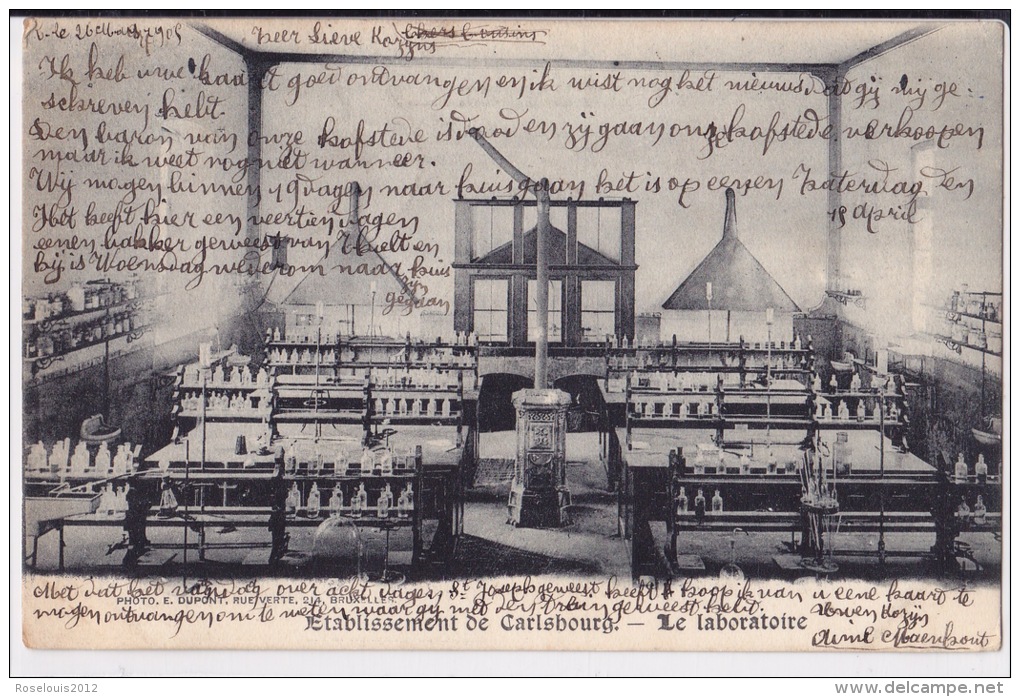 26 Maart 1905
Heer Lieve Kozijn
Ik heb uwe kaart goed ontvangen en ik wist nog het nieuws dat gij mij ge-
schreven hebt.
Den baron van onze hofstede is dood en zij gaan onze hofstede verkoopen
maar ik weet nog niet wanneer.
Wij mogen binnen 19 dagen naar huis gaan het is op eenen Zaterdag den
15 April
Het heeft hier een veertien dagen
eenen bakker geweest van Thielt en
hij is Woensdag wederom naar huis
zijn
gegaan
Met dat het vandag over acht dagen St Joseph geweest heeft hoop ik van u eene kaart te
mogen ontvangen om te weten waar gij met den trein geweest hebt.
Uwen Kozijn
PHOTO. E. DUPONT, RUE VERTE, 214, BRUXELLES.
Etablissement de Carlsbourg. — Le laboratoire
Roselouis2012
www.delcampe.net